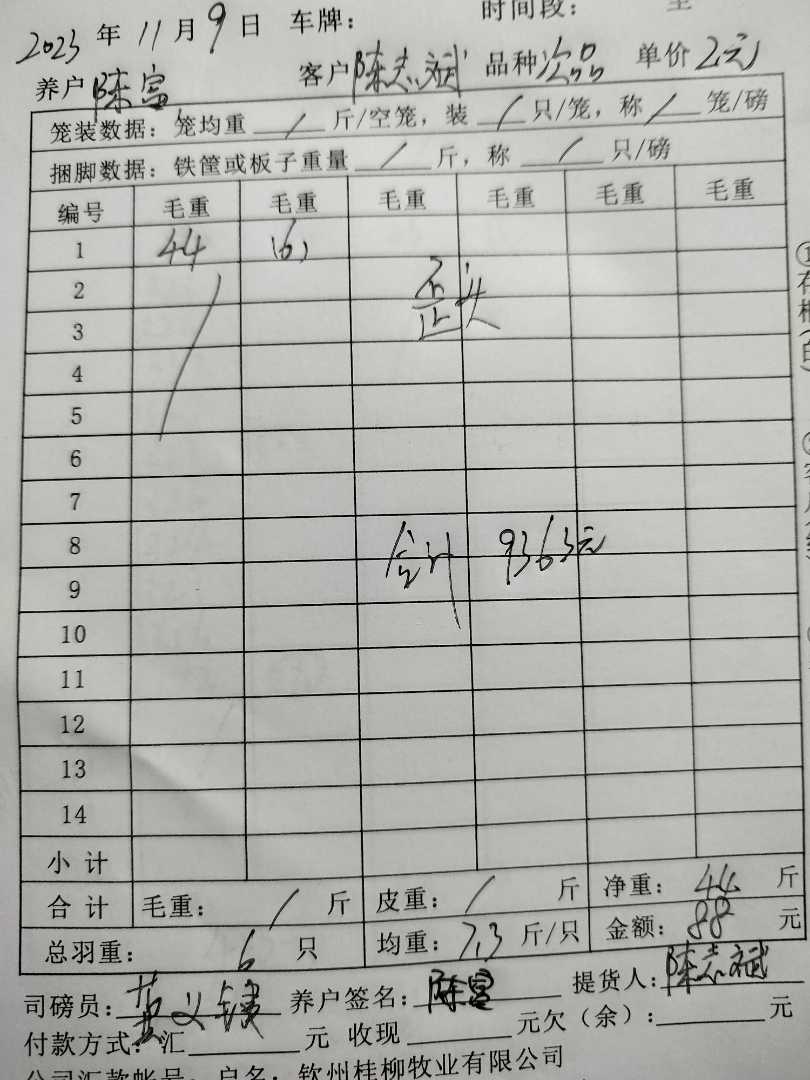 时间段： 至
2023 年 11 月 9 日 车牌：
养户 陈富 客户 陈志斌 品种 次品 单价 2元
笼装数据：笼均重 / 斤/空笼，装 / 只/笼，称 / 笼/磅
捆脚数据：铁筐或板子重量 / 斤，称 / 只/磅
编号 毛重 毛重 毛重 毛重 毛重 毛重
1 44 (6)
2 歪头
3
4
5
6
7
8 合计 9363元
9
10
11
12
13
14
小计
合计 毛重： / 斤 皮重： / 斤 净重： 44 斤
总羽重： 6 只 均重： 7.3 斤/只 金额： 88 元
司磅员： 养户签名： 陈富 提货人： 陈志斌
付款方式：汇 元 收现 元欠（余）： 元
公司汇款帐号：户名：钦州桂柳牧业有限公司